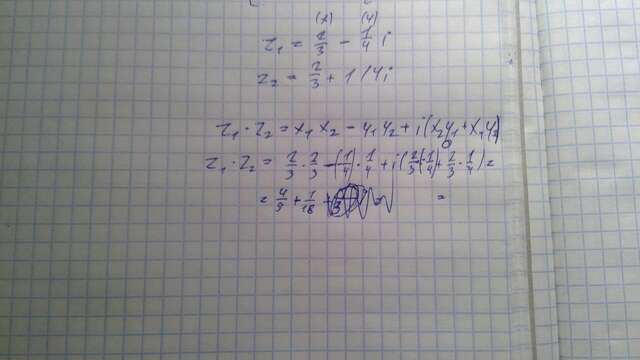 (x) (y)
z₁ = 2/3 - 1/4 i
z₂ = 2/3 + 1/4i
z₁ · z₂ = x₁ x₂ - y₁ y₂ + i(x₂y₁ + x₁y₂)
z₁ · z₂ = 2/3 · 2/3 - (-1/4) · 1/4 + i(2/3(-1/4) + 2/3 · 1/4) =
= 4/9 + 1/18 + =